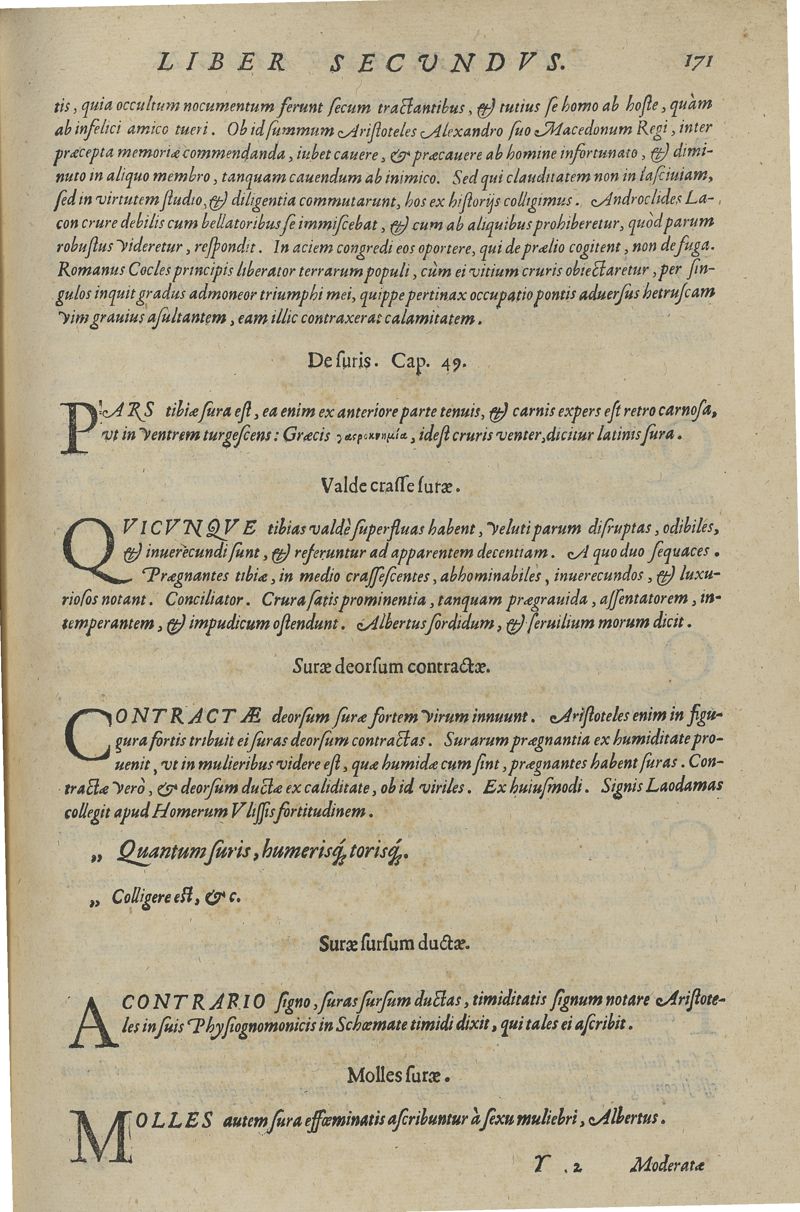 LIBER SECUNDVS. 171
tis, quia occultum nocumentum ferunt secum tractantibus, & tutius se homo ab hoste, quàm
ab infelici amico tueri. Ob id summum Aristoteles Alexandro suo Macedonum Regi, inter
præcepta memoriæ commendanda, iubet cauere, & præcauere ab homine infortunato, & dimi-
nuto in aliquo membro, tanquam cauendum ab inimico. Sed qui clauditatem non in lasciuiam,
sed in virtutem studio, & diligentia commutarunt, hos ex historijs colligimus. Androclides La-
con crure debilis cum bellatoribus se immiscebat, & cum ab aliquibus prohiberetur, quòd parum
robustus videretur, respondit. In aciem congredi eos oportere, qui de prælio cogitent, non de fuga.
Romanus Cocles principis liberator terrarum populi, cùm ei vitium cruris obiectaretur, per sin-
gulos inquit gradus admoneor triumphi mei, quippe pertinax occupatio pontis aduersus hetruscam
vim grauius asultantem, eam illic contraxerat calamitatem.
De suris. Cap. 49.
PARS tibiæ sura est, ea enim ex anteriore parte tenuis, & carnis expers est retro carnosa,
vt in ventrem turgescens: Græcis γαςροκνημία, idest cruris venter, dicitur latinis sura.
Valde crasse suræ.
QVICVNQVE tibias valdè superfluas habent, veluti parum disruptas, odibiles,
& inuerecundi sunt, & referuntur ad apparentem decentiam. A quo duo sequaces.
Prægnantes tibiæ, in medio crassescentes, abhominabiles, inuerecundos, & luxu-
riosos notant. Conciliator. Crura satis prominentia, tanquam prægrauida, assentatorem, in-
temperantem, & impudicum ostendunt. Albertus sordidum, & seruilium morum dicit.
Suræ deorsum contractæ.
CONTRACTÆ deorsum suræ fortem virum innuunt. Aristoteles enim in figu-
gura fortis tribuit ei suras deorsum contractas. Surarum prægnantia ex humiditate pro-
uenit, vt in mulieribus videre est, quæ humidæ cum sint, prægnantes habent suras. Con-
tractæ verò, & deorsum ductæ ex caliditate, ob id viriles. Ex huiusmodi. Signis Laodamas
collegit apud Homerum Vlissis fortitudinem.
„ Quantum suris, humerisq́; torisq́;.
„ Colligere est, & c.
Suræ sursum ductæ.
A CONTRARIO signo, suras sursum ductas, timiditatis signum notare Aristote-
les in suis Physiognomonicis in Schœmate timidi dixit, qui tales ei ascribit.
Molles suræ.
MOLLES autem sura effœminatis ascribuntur à sexu muliebri, Albertus.
Y 2 Moderatæ